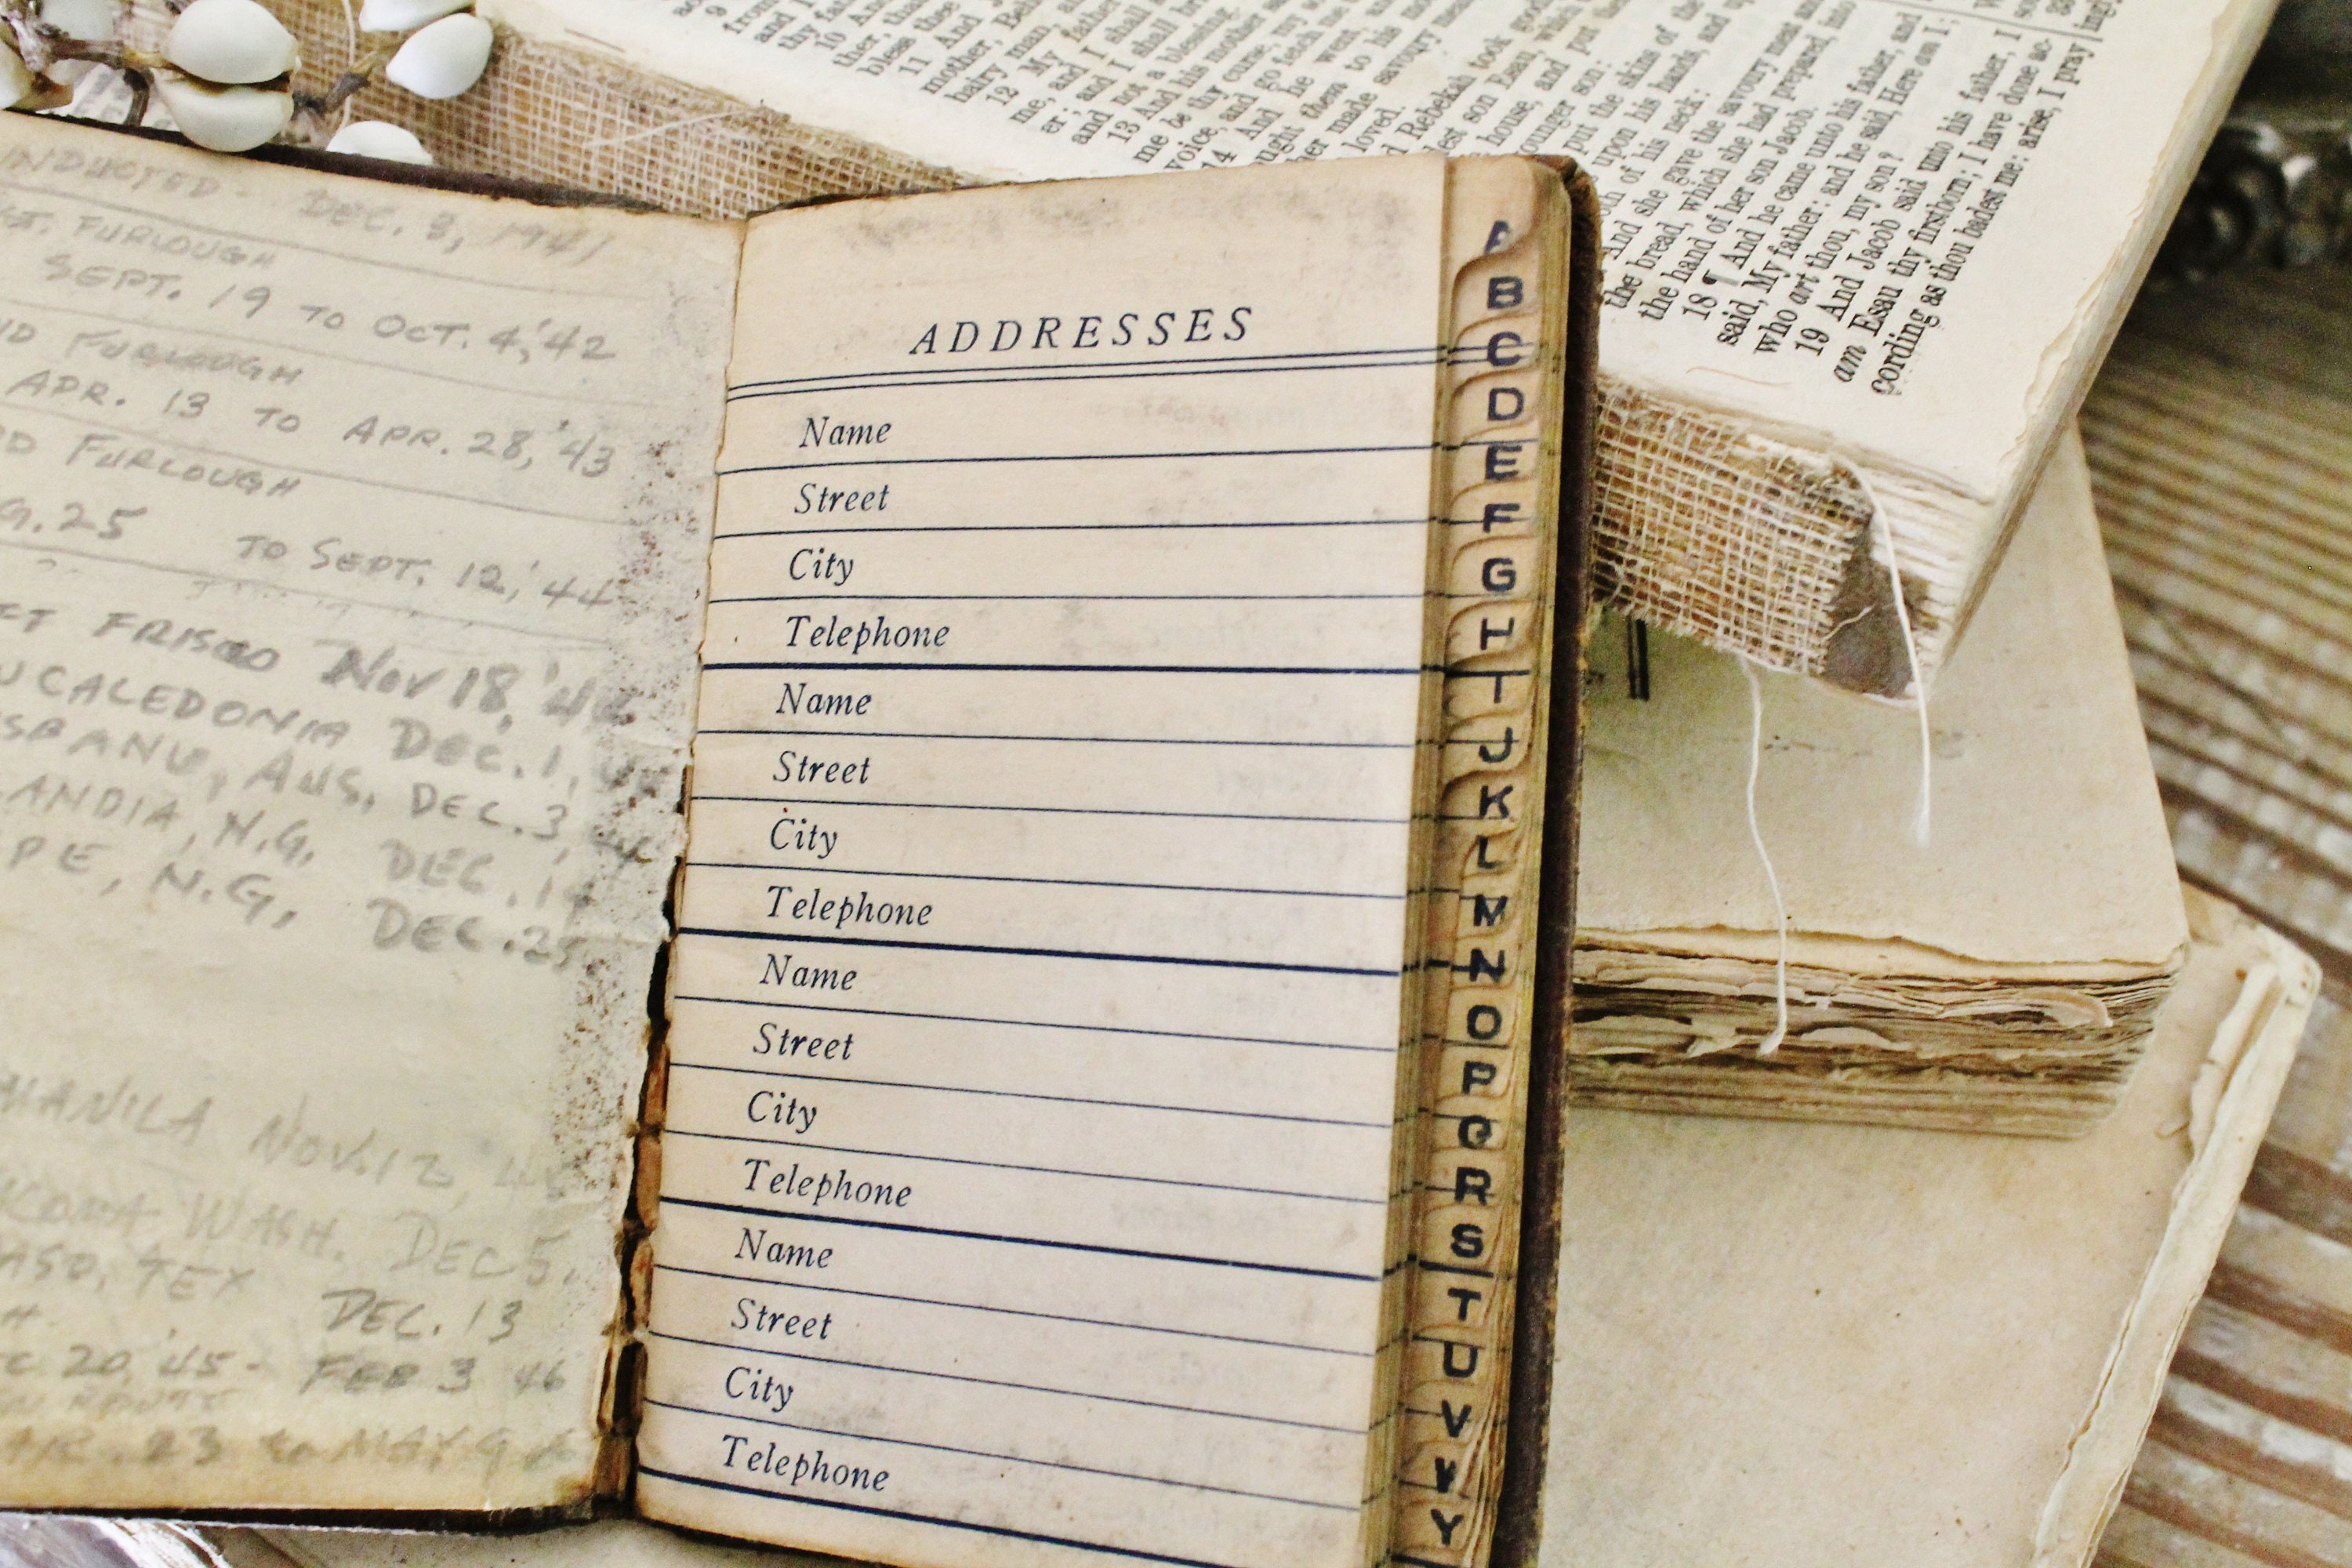 INDUCTED - DEC. 8, 1941
ST. FURLOUGH
SEPT. 19 TO OCT. 4, '42
ND FURLOUGH
APR. 13 TO APR. 28, '43
RD FURLOUGH
G. 25 TO SEPT. 12, '44
FT FRISCO NOV 18, '4
CALEDONIA DEC. 1,
SBANE, AUS, DEC. 3,
LANDIA, N.G. DEC. 1
PE, N.G, DEC. 25
MANILA NOV. 12, '4
COMA WASH. DEC 5,
PASO, TEX DEC. 13
H.
C 20, '45 - FEB 3 46
EN ROUTE
R. 23 to MAY 9
ADDRESSES
Name
Street
City
Telephone
Name
Street
City
Telephone
Name
Street
City
Telephone
Name
Street
City
Telephone
A
B
C
D
E
F
G
H
I
J
K
L
M
N
O
P
Q
R
S
T
U
V
W
Y
9
from
and I
thy fat
10 And
ther,
bless thee
11 And J
mother, Beh
hairy man,
12 My father
me, and I shall
er; and I shall br
and not a blessing.
13 And his mother sa
me be thy curse, my
voice, and go fetch me
14 And he went, and
ught them to his mo
her made savoury mea
loved.
d Rebekah took good
lest son Esau, which
house, and put the
ounger son:
put the skins of the
upon his hands, and up
oth of his neck:
And she gave the savoury meat and
the bread, which she had prepared, into
the hand of her son Jacob.
18 ¶ And he came unto his father, and
said, My father: and he said, Here am I;
who art thou, my son?
19 And Jacob said unto his father, I
am Esau thy firstborn; I have done ac-
cording as thou badest me: arise, I pray